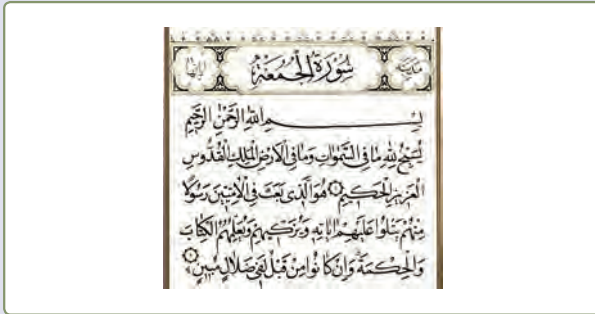 سُورَةُ الْجُمُعَةِ
بِسْمِ اللهِ الرَّحْمٰنِ الرَّحِيمِ
يُسَبِّحُ لِلهِ مَا فِي السَّمٰوَاتِ وَمَا فِي الْاَرْضِ الْمَلِكِ الْقُدُّوسِ
الْعَزِيزِ الْحَكِيمِ ۝ هُوَ الَّذِي بَعَثَ فِي الْاُمِّيِّنَ رَسُولًا
مِنْهُمْ يَتْلُوا عَلَيْهِمْ اٰيَاتِهِ وَيُزَكِّيهِمْ وَيُعَلِّمُهُمُ الْكِتَابَ
وَالْحِكْمَةَ وَاِنْ كَانُوا مِنْ قَبْلُ لَفِي ضَلَالٍ مُبِينٍ ۝